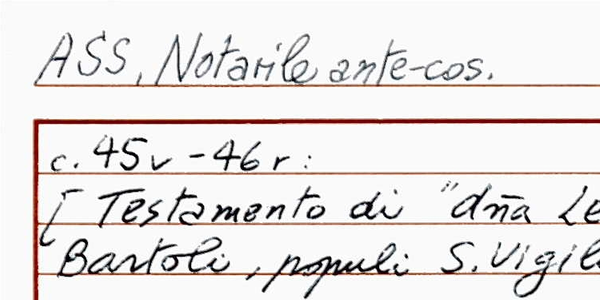 ASS, Notarile ante-cos.
c. 45v - 46r:
[ Testamento di "dña Le
Bartoli, populi S. Vigil